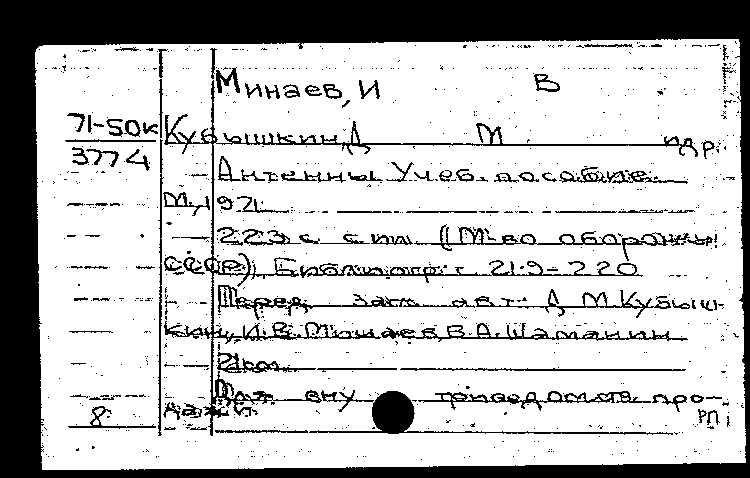 Минаев, И В
71-50к Кубышкин, Д М идр.
3774
Антенны Учеб. пособие.
М., 1971.
223 с с ил (М-во обороны
СССР) Библиогр: с 219-220
Перед загл авт: Д М. Кубыш-
кин, И. В. Минаев, В. А. Шаманин
21 коп.
вну ведомств. про-
8 РП